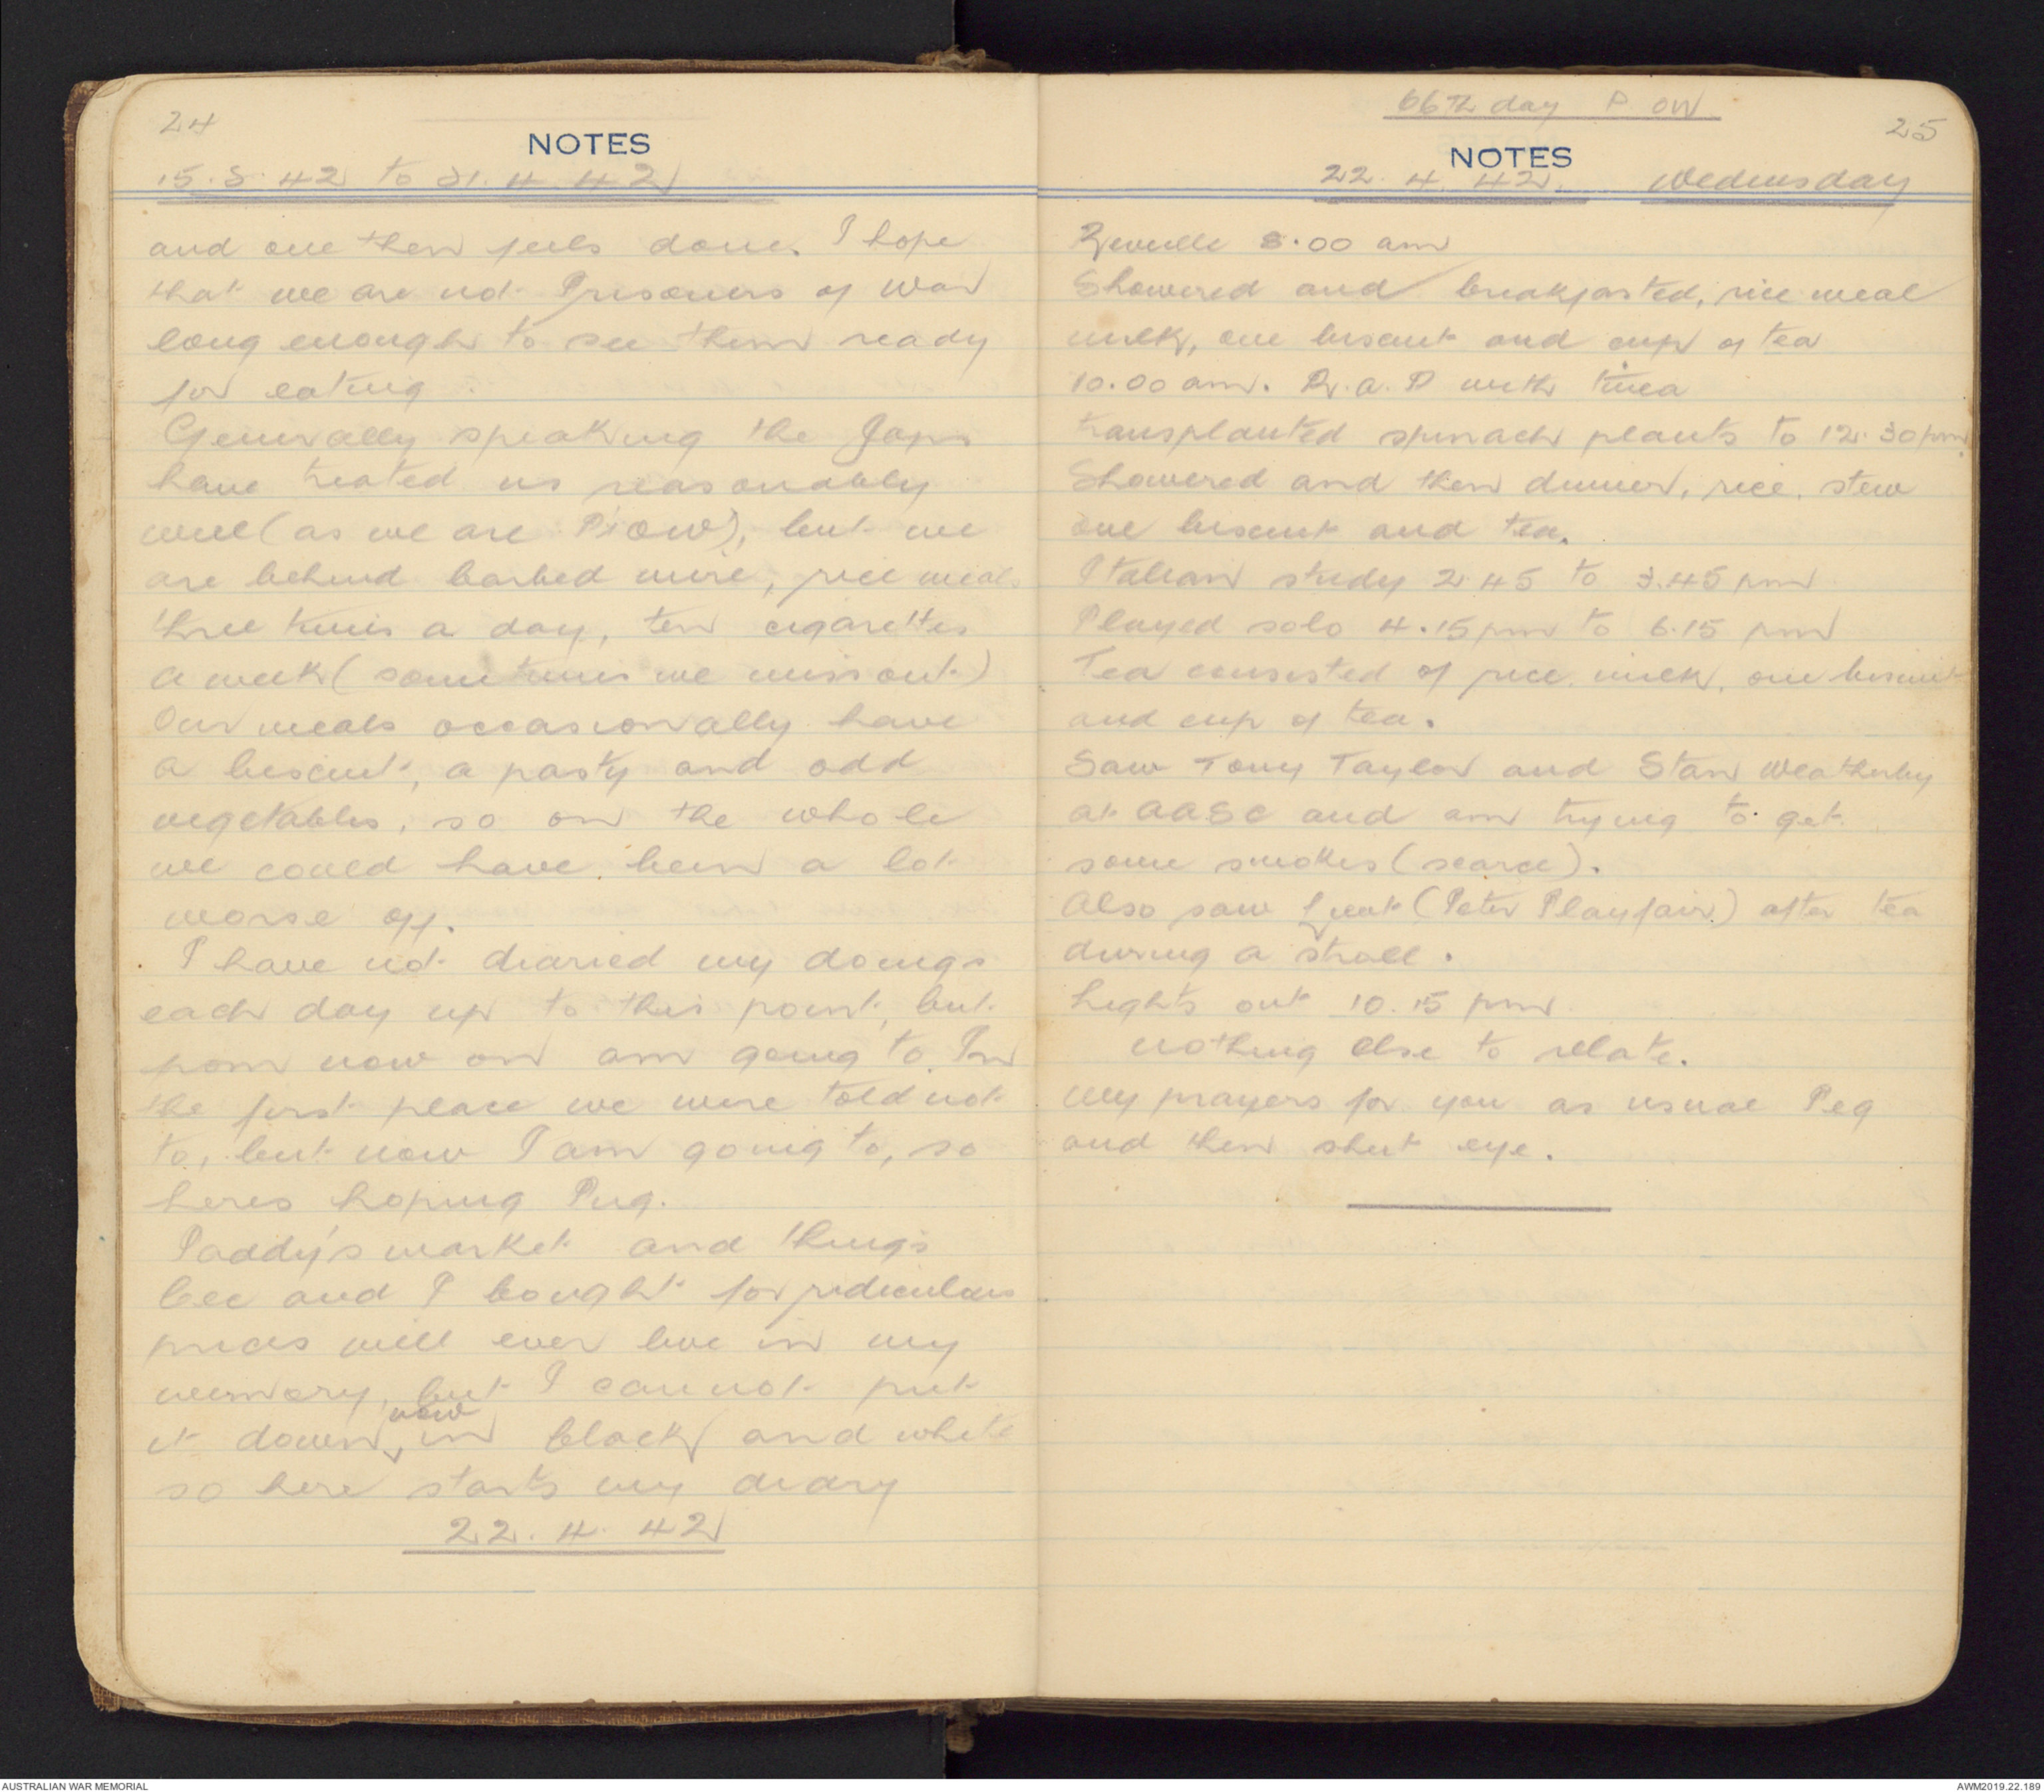 24
NOTES
15.3.42 to 21.4.42
and one then feels done. I hope
that we are not Prisoners of War
long enough to see them ready
for eating.
Generally speaking the Japs
have treated us reasonably
well (as we are P.O.W), but we
are behind barbed wire, rice meals
three times a day, ten cigarettes
a week (sometimes we miss out)
Our meals occasionally have
a biscuit, a pasty and odd
vegetables, so on the whole
we could have been a lot
worse off.
I have not diaried my doings
each day up to this point, but
from now on am going to. In
the first place we were told not
to, but now I am going to, so
heres hoping Peg.
Paddy's market and things
Cec and I bought for ridiculous
prices will ever live in my
memory, but I cannot put
it down now in black and white
so here starts my diary
22.4.42
66th day P OW
25
NOTES
22.4.42. Wednesday
Reveille 8.00 am
Showered and breakfasted, rice meal
milk, one biscuit and cup of tea
10.00 am. R.A.P with tinea
transplanted spinach plants to 12.30pm.
Showered and then dinner, rice, stew
one biscuit and tea.
Italian study 2.45 to 3.45 pm
Played solo 4.15pm to 6.15 pm
Tea consisted of rice, milk, one biscuit
and cup of tea.
Saw Tony Taylor and Stan Weatherby
at AASC and am trying to get
some smokes (scarce).
Also saw Lieut (Peter Playfair) after tea
during a stroll.
Lights out 10.15 pm
nothing else to relate.
My prayers for you as usual Peg
and then shut eye.
AUSTRALIAN WAR MEMORIAL
AWM2019.22.189